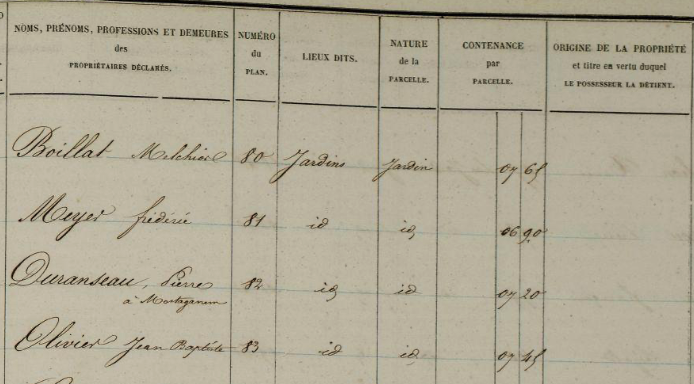 NOMS, PRÉNOMS, PROFESSIONS ET DEMEURES
des
PROPRIÉTAIRES DÉCLARÉS.
NUMÉRO
du
PLAN.
LIEUX DITS.
NATURE
de la
PARCELLE.
CONTENANCE
par
PARCELLE.
ORIGINE DE LA PROPRIÉTÉ
et titre en vertu duquel
LE POSSESSEUR LA DÉTIENT.
Boillat Melchior 80 Jardins Jardin 07 65
Meyer frédéric 81 id id 06 90
Duranseau, Pierre 82 id id 07 20
à Mostaganem
Olivier Jean Baptiste 83 id id 07 45